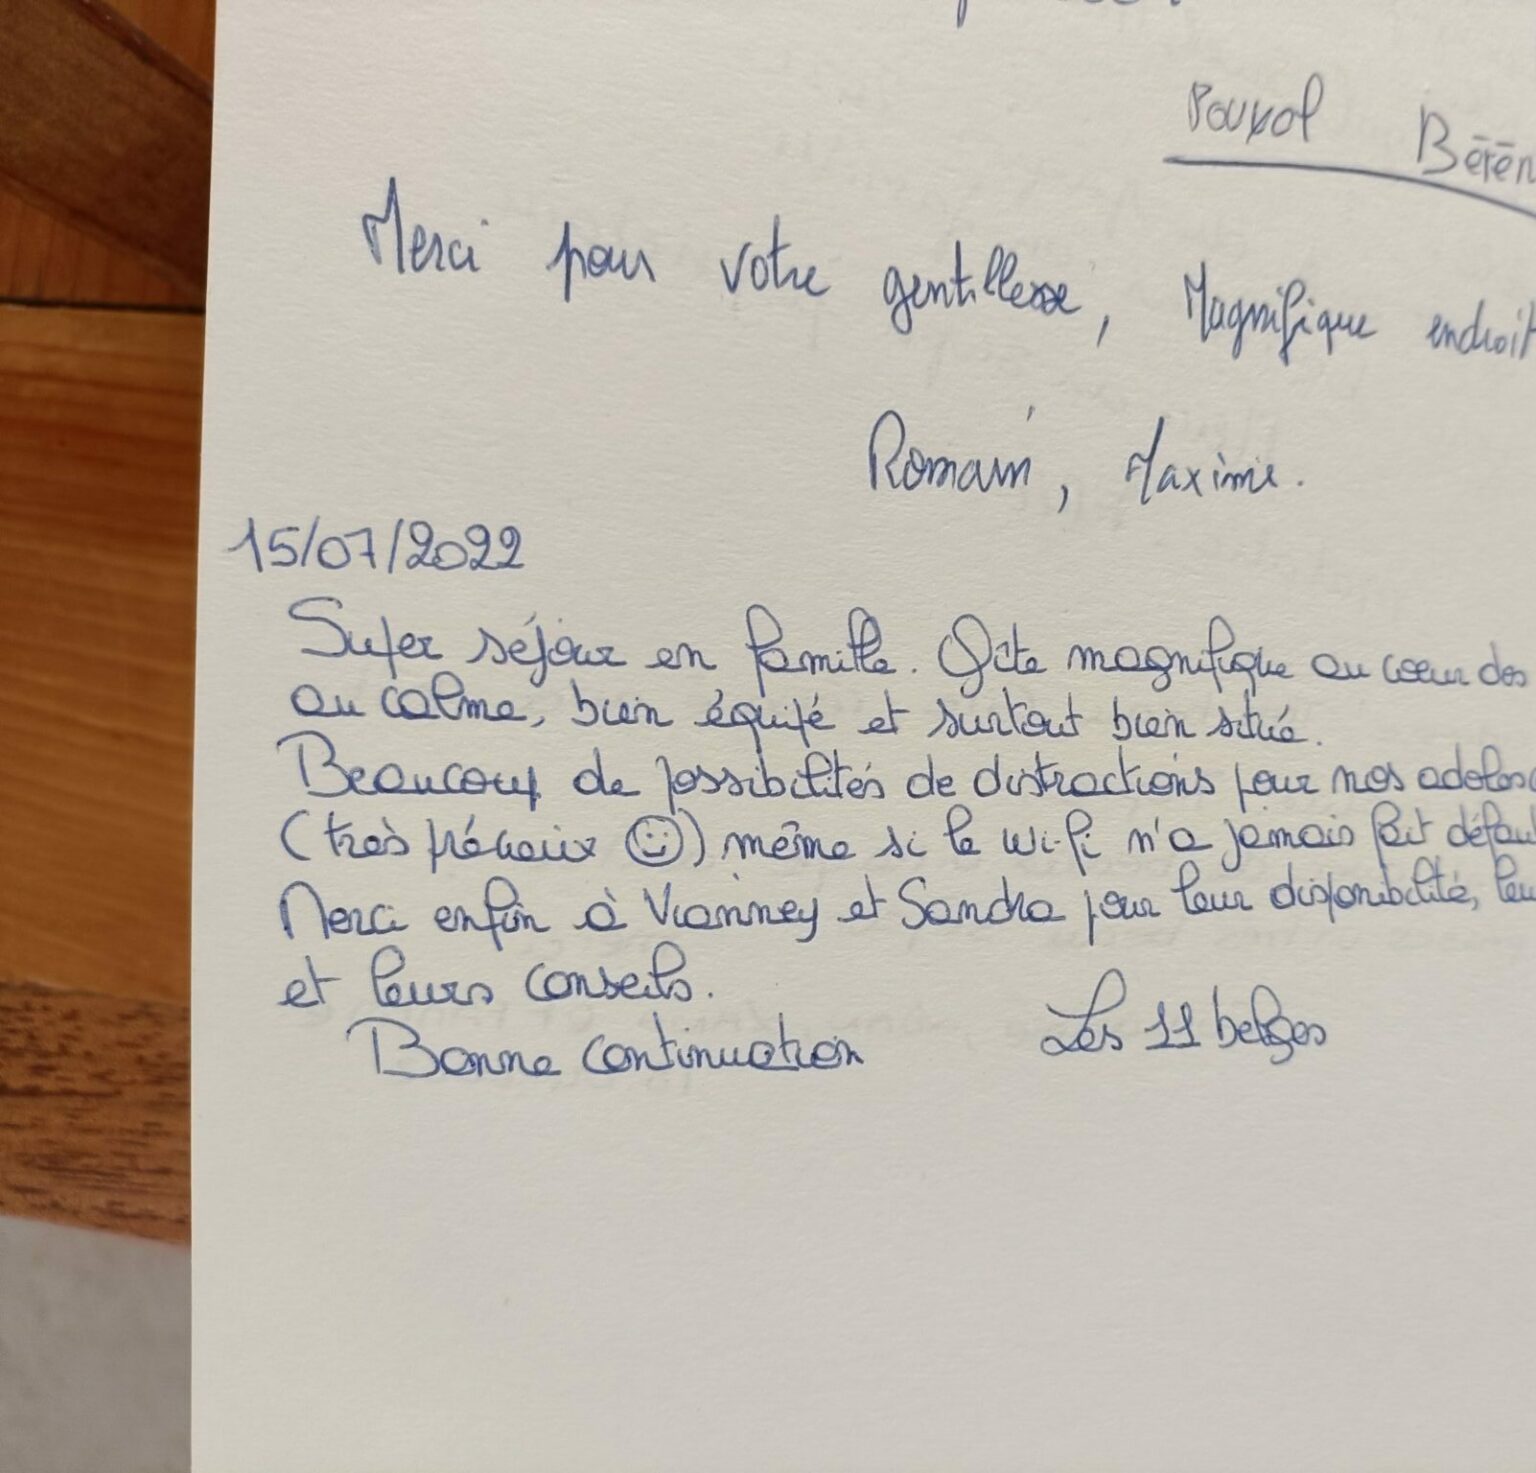 Pouxol Bérén
Merci pour votre gentillesse, Magnifique endroit
Romain, Maxime.
15/07/2022
Super séjour en famille. Gîte magnifique au cœur des
au calme, bien équipé et surtout bien situé.
Beaucoup de possibilités de distractions pour nos adolesc
(très précieux ☺) même si le wi-fi n'a jamais fait défau
Merci enfin à Vianney et Sandra pour leur disponibilité, leu
et leurs conseils.
Bonne continuation Les 11 belges